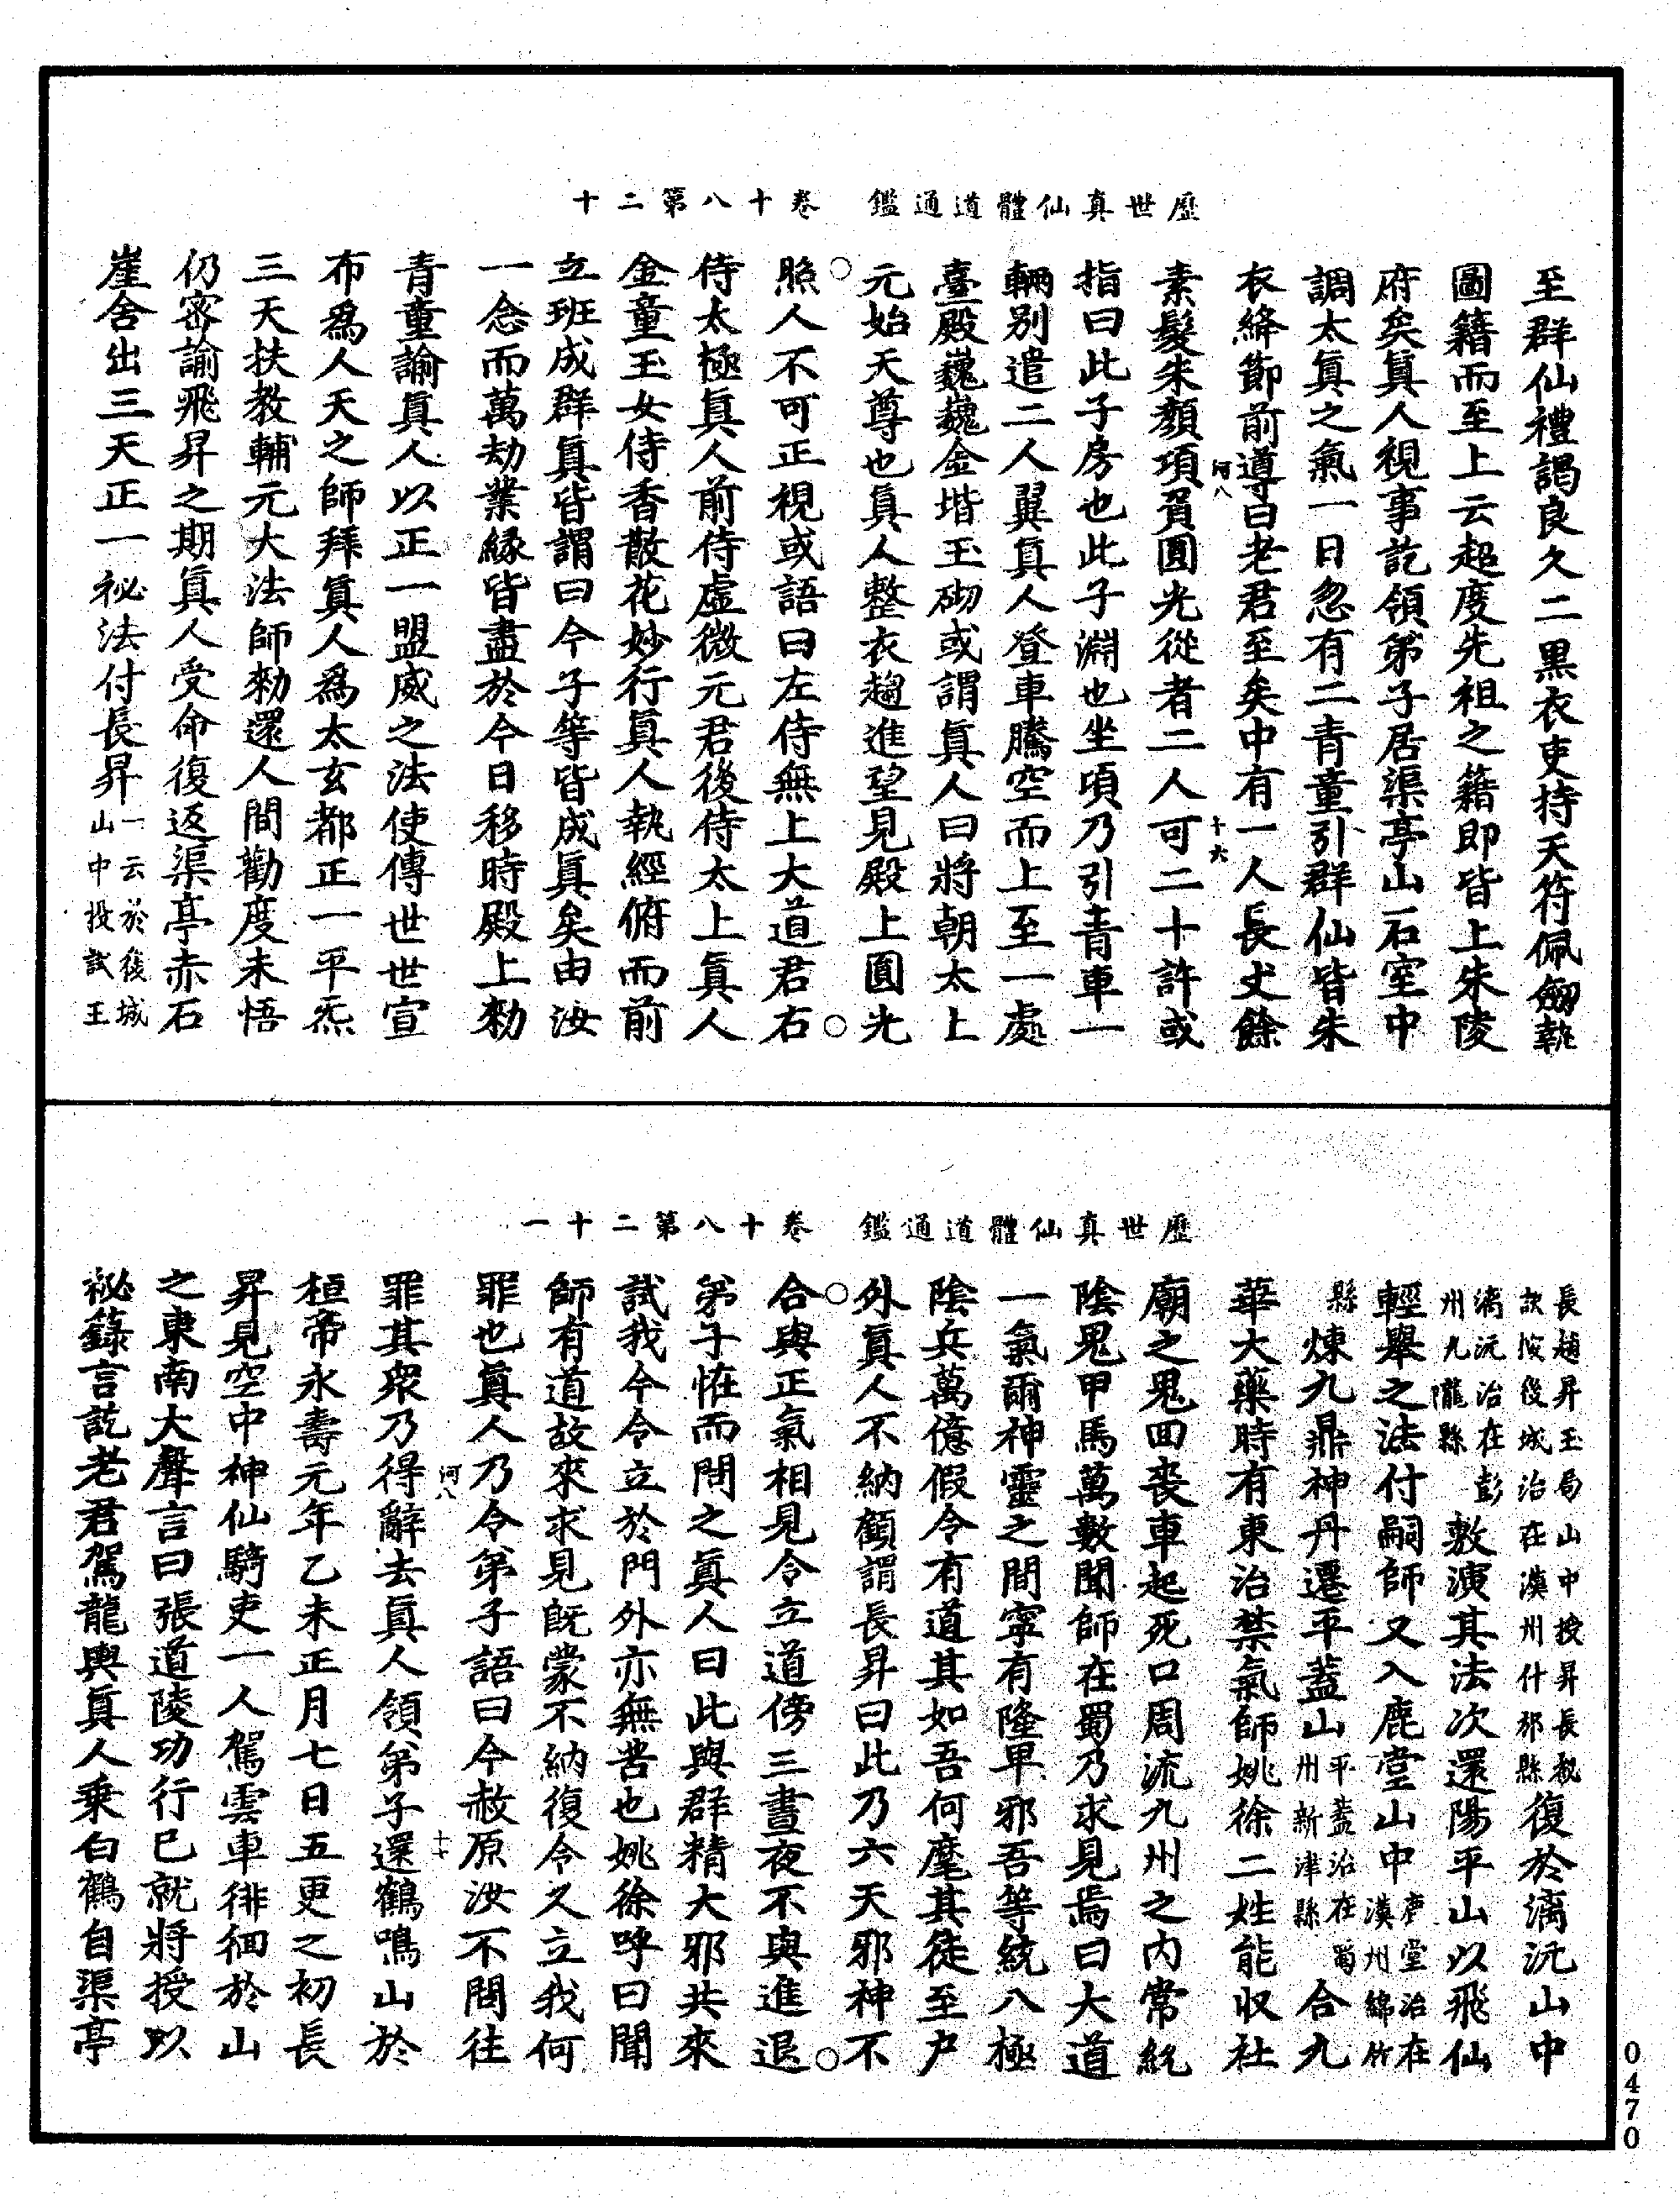 歷世真仙體道通鑑　卷十八第二十
至群仙禮謁良久二黑衣吏持天符佩劒執
圖籍而至上云超度先祖之籍即皆上朱陵
府矣真人視事訖領弟子居渠亭山石室中
調太真之氣一日忽有二青童引群仙皆朱
衣絳節前導曰老君至矣中有一人長丈餘
素髮朱顏項負圓光從者二人可二十許或
河八　十六
指曰此子房也此子淵也坐頃乃引青車一
輛別遣二人翼真人登車騰空而上至一處
臺殿巍巍金堦玉砌或謂真人曰將朝太上
元始天尊也真人整衣趨進望見殿上圓光
照人不可正視或語曰左侍無上大道君右
侍太極真人前侍虛微元君後侍太上真人
金童玉女侍香散花妙行真人執經俯而前
立班成群真皆謂曰今子等皆成真矣由汝
一念而萬劫業緣皆盡於今日移時殿上勑
青童諭真人以正一盟威之法使傳世世宣
布為人天之師拜真人為太玄都正一平炁
三天扶教輔元大法師勑還人間勸度未悟
仍密諭飛昇之期真人受命復返渠亭赤石
崖舍出三天正一祕法付長昇一云於後城山中投試王
歷世真仙體道通鑑　卷十八第二十一
長趙昇玉局山中授昇長秘訣按後城治在漢州什邡縣復於漓沅山中
漓沅治在彭州九隴縣敷演其法次還陽平山以飛仙
輕舉之法付嗣師又入鹿堂山中鹿堂治在漢州綿竹
縣煉九鼎神丹遷平蓋山平蓋治在蜀州新津縣合九
華大藥時有東治禁氣師姚徐二姓能収社
廟之鬼回喪車起死口周流九州之內常統
陰鬼甲馬萬數聞師在蜀乃求見焉曰大道
一氣爾神靈之間寧有隆卑邪吾等統八極
陰兵萬億假令有道其如吾何麾其徒至户
外真人不納顧謂長昇曰此乃六天邪神不
合與正氣相見令立道傍三晝夜不與進退
弟子恠而問之真人曰此與群精大邪共來
試我今令立於門外亦無苦也姚徐呼曰聞
師有道故來求見既蒙不納復令久立我何
罪也真人乃令弟子語曰今赦原汝不問往
罪其衆乃得辭去真人領弟子還鶴鳴山於
河八　十七
桓帝永壽元年乙未正月七日五更之初長
昇見空中神仙騎吏一人駕雲車徘徊於山
之東南大聲言曰張道陵功行已就將授以
祕籙言訖老君駕龍輿真人乗白鶴自渠亭
0470